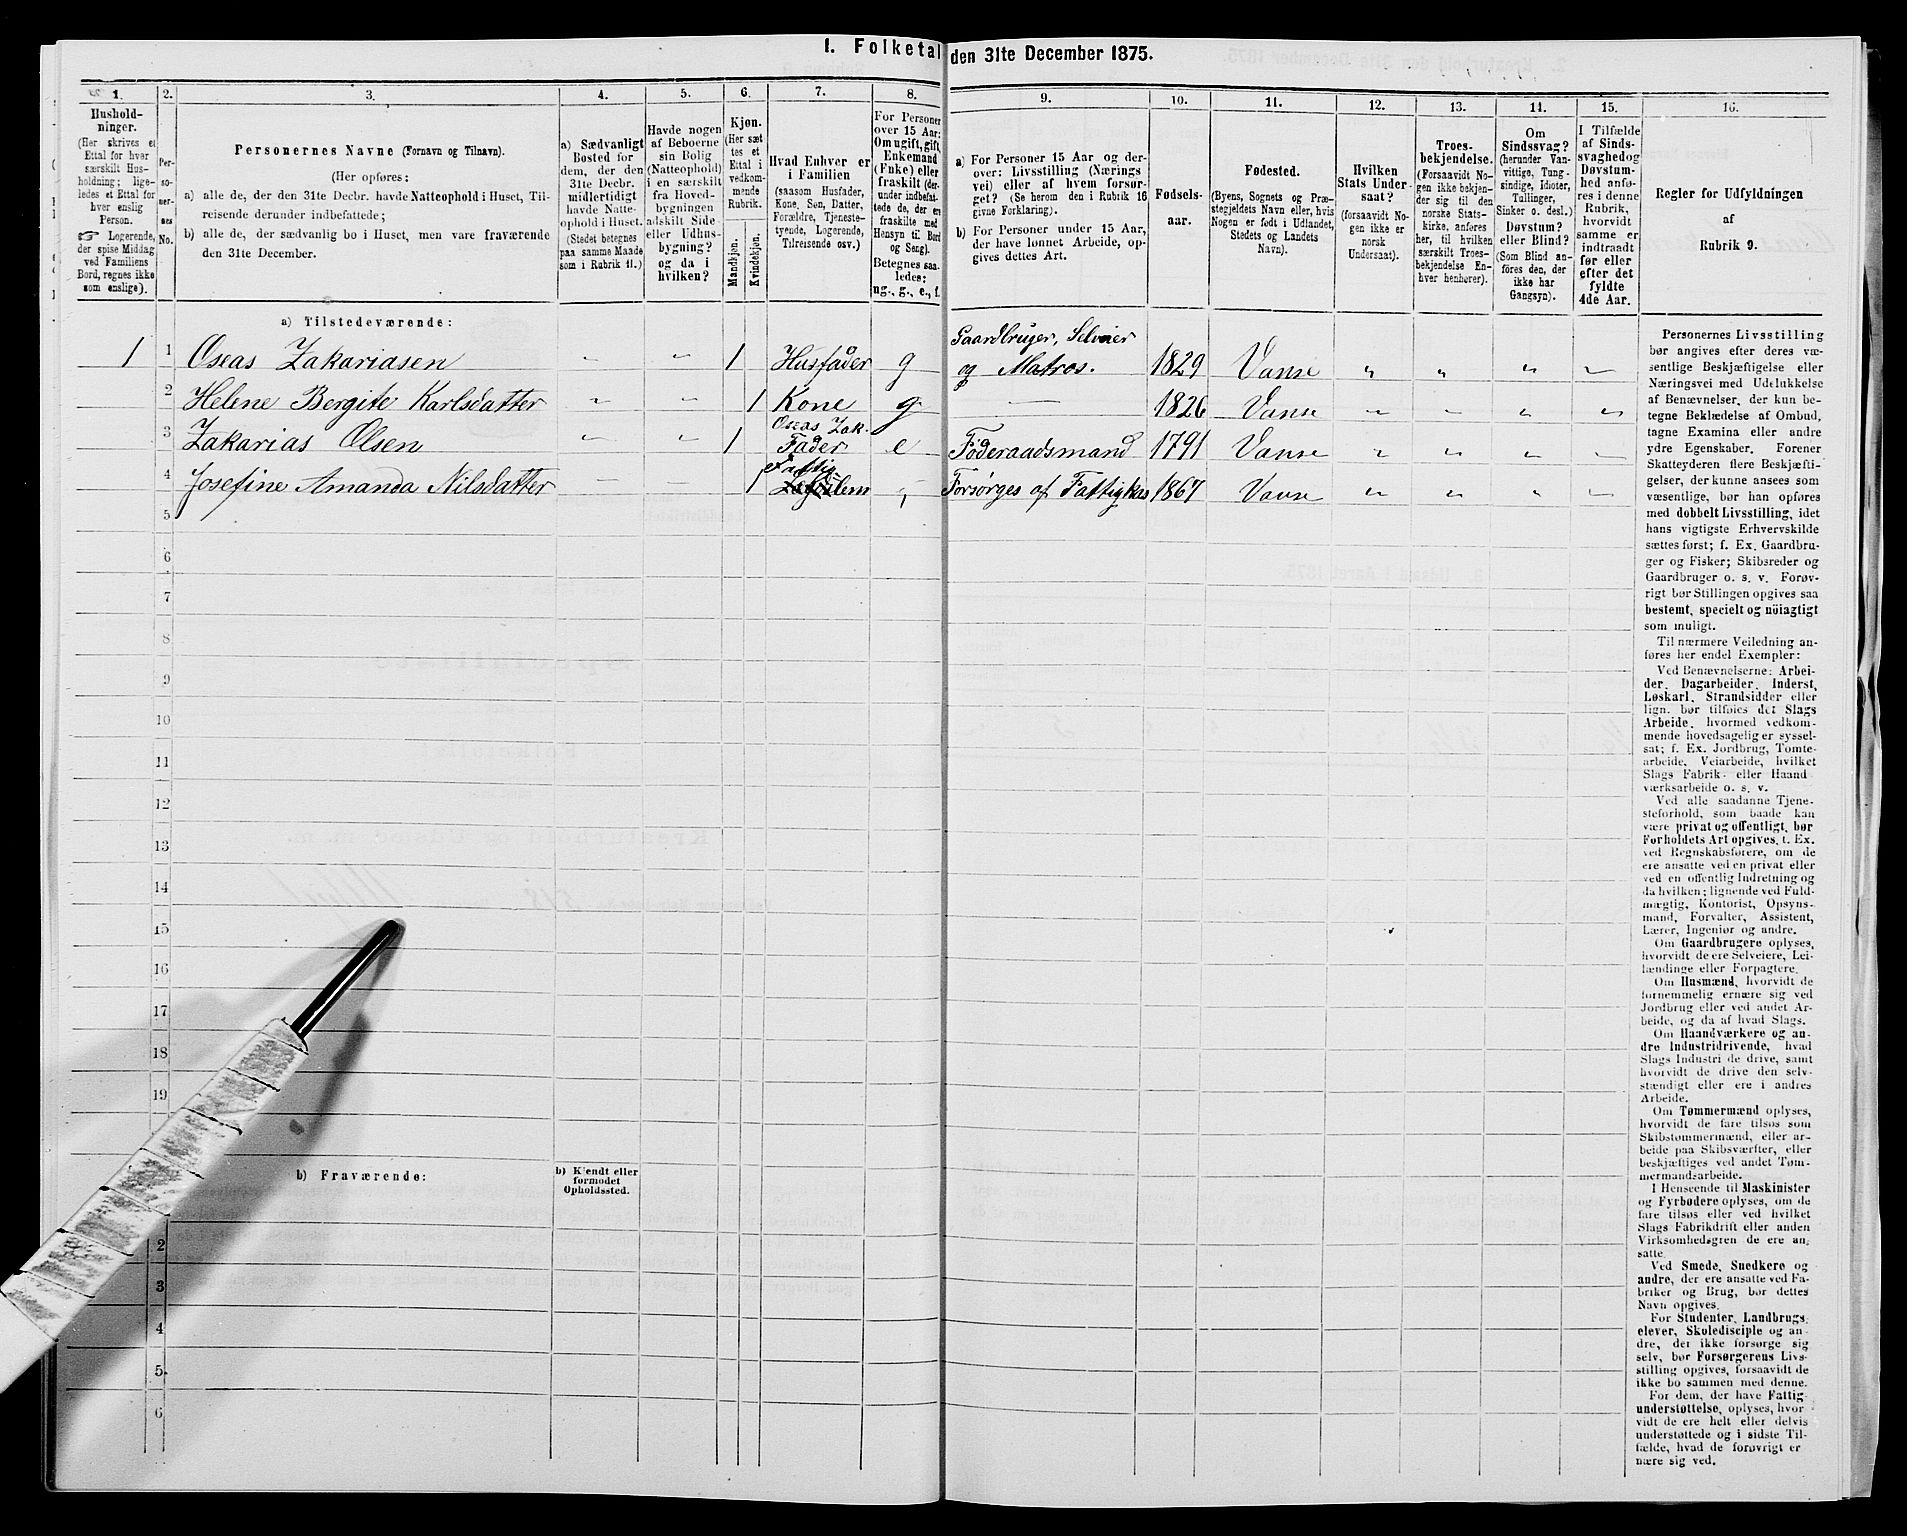 1. Folketal den 31te December 1875.
1. 2. 3. 4. 5. 6. 7. 8. 9. 10. 11. 12. 13. 14. 15. 16.
Hushold-
ninger.
(Her skrives et
Ettal for hver
særskilt Hus-
holdning; lige-
ledes et Ettal for
hver enslig
Person.
☞ Logerende,
der spise Middag
ved Familiens
Bord, regnes ikke
som enslige).
Per-
so-
ner-
nes
No.
Personernes Navne (Fornavn og Tilnavn).
(Her opføres:
a) alle de, der den 31te Decbr. havde Natteophold i Huset, Til-
reisende derunder indbefattede;
b) alle de, der sædvanlig bo i Huset, men vare fraværende
den 31te December.
a) Sædvanligt
Bosted for
dem, der den
31te Decbr.
midlertidigt
havde Natte-
ophold i Huset.
(Stedet betegnes
paa samme Maade
som i Rubrik 11.)
Havde nogen
af Beboerne
sin Bolig
(Natteophold)
i en særskilt
fra Hoved-
bygningen
adskilt Side-
eller Udhus-
bygning?
og da i
hvilken?
Kjøn.
(Her sæt
tes et
Ettal i
vedkom-
mende
Rubrik.
Mandkjøn.
Kvindekjøn.
Hvad Enhver er
i Familien
(saasom Husfader,
Kone, Søn, Datter,
Forældre, Tjeneste-
tyende, Logerende,
Tilreisende osv.)
For Personer
over 15 Aar:
Om ugift, gift,
Enkemand
(Enke) eller
fraskilt (der-
under indbefat-
tede de, der er
fraskilte med
Hensyn til Bord
og Seng).
Betegnes saa-
ledes:
ug., g., e., f.
a) For Personer 15 Aar og der-
over: Livsstilling (Nærings
vei) eller af hvem forsør-
get? (Se herom den i Rubrik 16
givne Forklaring).
b) For Personer under 15 Aar,
der have lønnet Arbeide, op-
gives dettes Art.
Fødsels-
aar.
Fødested.
(Byens, Sognets og Præ-
stegjeldets Navn eller, hvis
Nogen er født i Udlandet,
Stedets og Landets
Navn).
Hvilken
Stats Under-
saat?
(forsaavidt No-
gen ikke er
norsk
Undersaat).
Troes-
bekjendelse.
(Forsaavidt No-
gen ikke bekjen-
der sig til den
norske Stats-
kirke, anføres
her, til hvilken
særskilt Troes-
bekjendelse En-
hver henhører).
Om
Sindssvag?
(herunder Van-
vittige, Tung-
sindige, Idioter,
Tullinger,
Sinker o. desl.)
Døvstum?
eller Blind?
(Som Blind an-
føres den, der
ikke har
Gangsyn).
I Tilfælde
af Sinds-
svaghed og
Døvstum-
hed anfø-
res i denne
Rubrik,
hvorvidt
samme er
indtraadt
før eller
efter det
fyldte
4de Aar.
Regler for Udfyldningen
af
Rubrik 9.
a) Tilstedeværende:
1 1 Oseas Zakariasen " " 1 Husfader g Gaardbruger, Selveier og Matros. 1829 Vanse " " " "
2 Helene Bergite Karlsdatter " " 1 Kone g — 1826 Vanse " " " "
3 Zakarias Olsen " " 1 Oseas Zak. Fader e Föderaadsmand 1791 Vanse " " " "
4 Josefine Amanda Nilsdatter " " 1 Fattiglem , Forsørges af Fattigkas 1867 Vanse " " " "
5
6
7
8
9
10
11
12
13
14
15
16
17
18
19
b) Fraværende:
b) Kjendt eller
formodet
Opholdssted.
2
3
4
5.
6
Personernes Livsstilling
bør angives efter deres væ-
sentlige Beskjæftigelse eller
Næringsvei med Udelukkelse
af Benævnelser, der kun be-
tegne Beklædelse af Ombud,
tagne Examina eller andre
ydre Egenskaber. Forener
Skatteyderen flere Beskjæfti-
gelser, der kunne ansees som
væsentlige, bør han opføres
med dobbelt Livsstilling, idet
hans vigtigste Erhvervskilde
sættes først; f. Ex. Gaardbru-
ger og Fisker; Skibsreder og
Gaardbruger o. s. v. Forøv-
rigt bør Stillingen opgives saa
bestemt, specielt og nöiagtigt
som muligt.
Til nærmere Veiledning an-
føres her endel Exempler:
Ved Benævnelserne: Arbei-
der, Dagarbeider, Inderst,
Løskarl, Strandsidder eller
lign. bør tilføies det Slags
Arbeide, hvormed vedkom-
mende hovedsagelig er syssel-
sat; f. Ex. Jordbrug, Tomte-
arbeide, Veiarbeide, hvilket
Slags Fabrik- eller Haand
værksarbeide o. s. v.
Ved alle saadanne Tjene-
steforhold, som baade kan
være privat og offentligt, bør
Forholdets Art opgives, t. Ex.
ved Regnskabsførere, om de
ere ansatte ved en privat eller
ved en offentlig Indretning og
da hvilken; lignende ved Fuld-
mægtig, Kontorist, Opsyns-
mand, Forvalter, Assistent,
Lærer, Ingeniør og andre.
Om Gaardbrugere oplyses,
hvorvidt de ere Selveiere, Lei-
lændinge eller Forpagtere.
Om Husmænd, hvorvidt de
fornemmelig ernære sig ved
Jordbrug eller ved andet Ar-
beide, og da af hvad Slags.
Om Haandværkere og an-
dre Industridrivende, hvad
Slags Industri de drive, samt
hvorvidt de drive den selv-
stændigt eller ere i andres
Arbeide.
Om Tømmermænd oplyses,
hvorvidt de fare tilsøs som
Skibstømmermænd, eller ar-
beide paa Skibsværfter, eller
beskjæftiges ved andet Tøm-
mermandsarbeide.
I Henseende til Maskinister
og Fyrbødere oplyses, om de
fare tilsøs eller ved hvilket
Slags Fabrikdrift eller anden
Virksomhedsgren de ere an-
satte.
Ved Smede, Snedkere og
andre, der ere ansatte ved Fa-
briker og Brug, bør dettes
Navn opgives.
For Studenter, Landbrugs-
elever, Skoledisciple og an-
dre, der ikke forsørge sig
selv, bør Forsørgerens Livs-
stilling opgives, forsaavidt de
ikke bo sammen med denne.
For dem, der have Fattig-
understøttelse, oplyses, hvor
vidt de ere helt eller delvis
understøttede og i sidste Til-
fælde, hvad de forøvrigt er
nære sig ved.